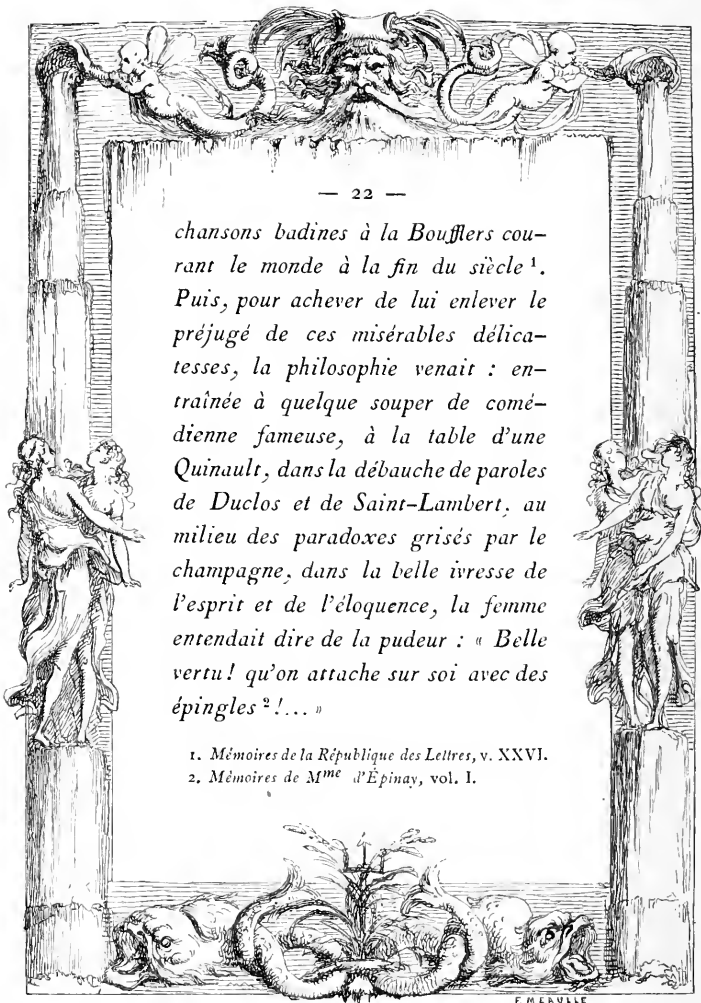 — 22 —
chansons badines à la Boufflers cou-
rant le monde à la fin du siècle ¹.
Puis, pour achever de lui enlever le
préjugé de ces misérables délica-
tesses, la philosophie venait : en-
traînée à quelque souper de comé-
dienne fameuse, à la table d'une
Quinault, dans la débauche de paroles
de Duclos et de Saint-Lambert, au
milieu des paradoxes grisés par le
champagne, dans la belle ivresse de
l'esprit et de l'éloquence, la femme
entendait dire de la pudeur : « Belle
vertu ! qu'on attache sur soi avec des
épingles ² !... »
1. Mémoires de la République des Lettres, v. XXVI.
2. Mémoires de Mme d'Épinay, vol. I.
F. MÉAULLE